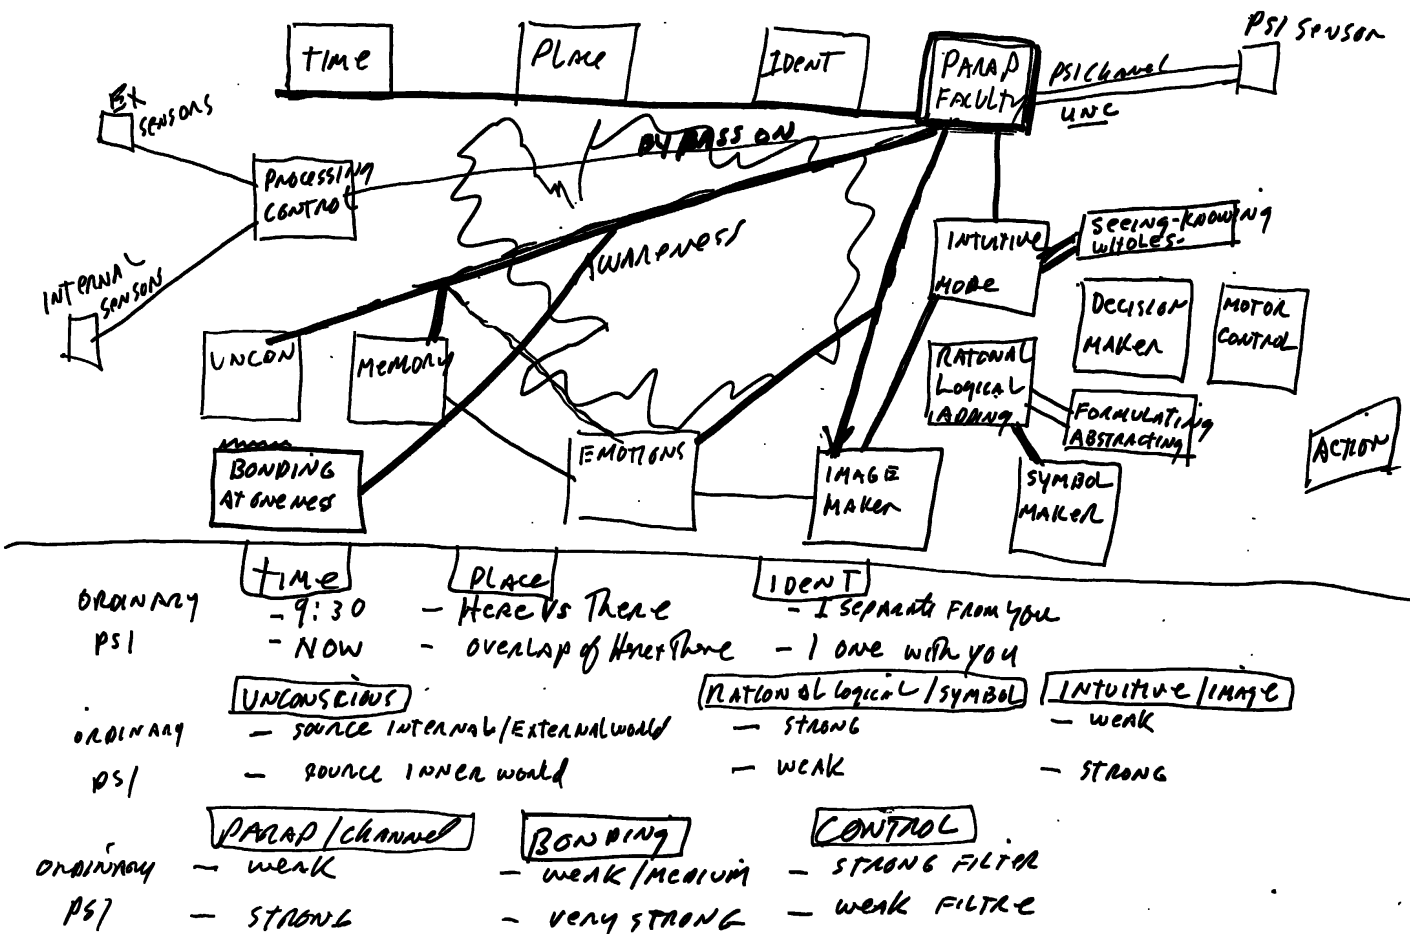 TIME
PLACE
IDENT
PARAP
FACULTY
PSI CHANNEL
UNC
PSI SENSOR
EX
SENSORS
PROCESSING
CONTROL
BYPASS ON
AWARENESS
INTERNAL
SENSOR
UNCON
MEMORY
BONDING
AT ONENESS
EMOTIONS
IMAGE
MAKER
INTUITIVE
MODE
SEEING-KNOWING
WHOLES-
DECISION
MAKER
MOTOR
CONTROL
RATIONAL
LOGICAL
ADDING
FORMULATING
ABSTRACTING
SYMBOL
MAKER
ACTION
TIME PLACE IDENT
ORDINARY - 9:30 - HERE VS THERE - I SEPARATE FROM YOU
PSI - NOW - OVERLAP of Here+There - I ONE WITH YOU
UNCONSCIOUS RATIONAL LOGICAL/SYMBOL INTUITIVE/IMAGE
ORDINARY - SOURCE INTERNAL/EXTERNAL WORLD - STRONG - WEAK
PSI - SOURCE INNER WORLD - WEAK - STRONG
PARAP/CHANNEL BONDING CONTROL
ORDINARY - WEAK - WEAK/MEDIUM - STRONG FILTER
PSI - STRONG - VERY STRONG - WEAK FILTRE